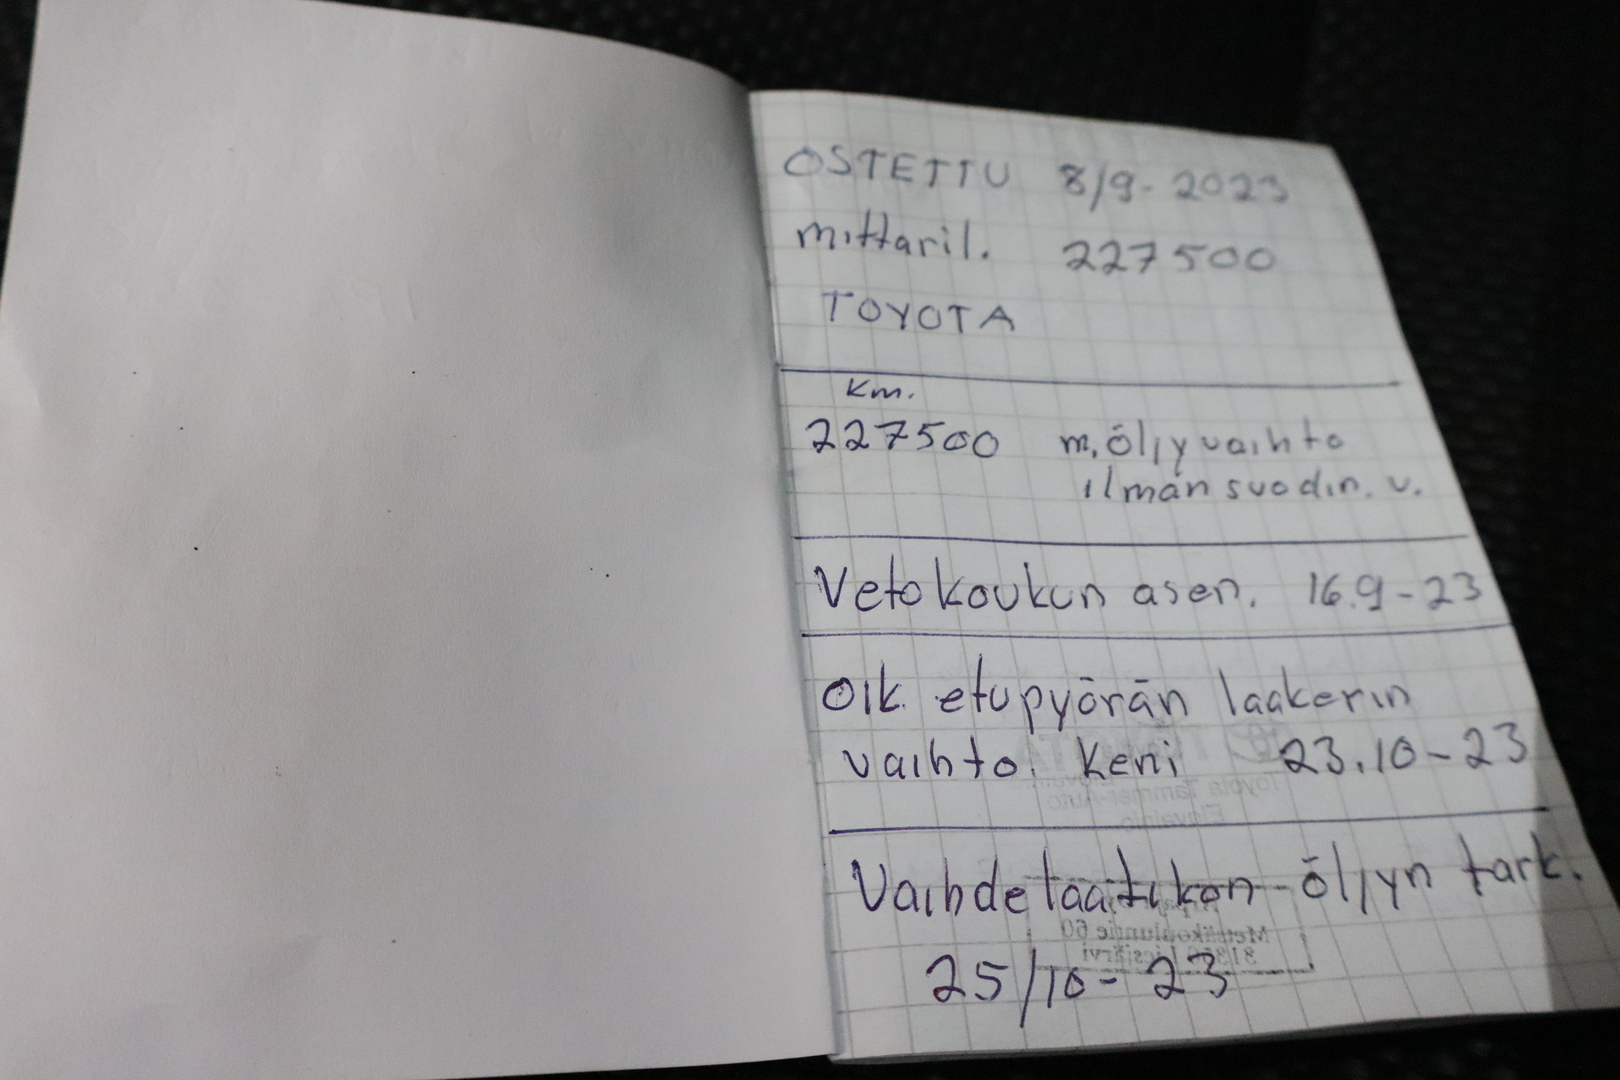 OSTETTU 8/9-2023
mittaril. 227500
TOYOTA
Km.
227500 m, öljyvaihto
ilmansuodin. v.
Vetokoukun asen. 16.9-23
Oik. etupyörän laakerin
vaihto. Keni 23.10-23
Vaihdelaatikon öljyn tark.
25/10-23